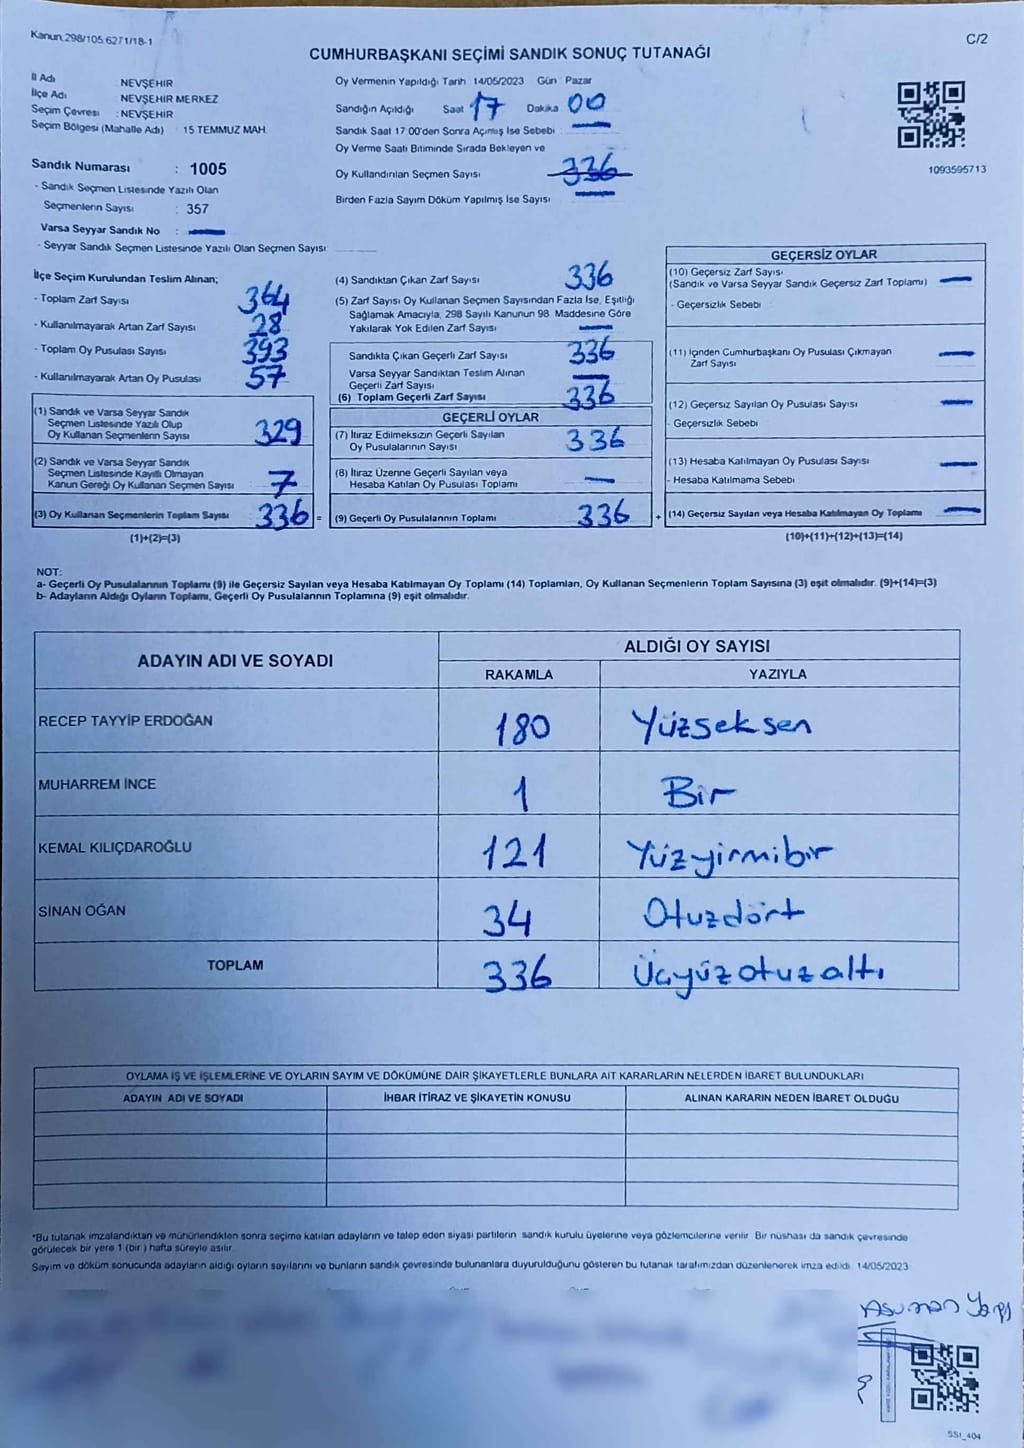 Kanun.298/105.6271/18-1
C/2
CUMHURBAŞKANI SEÇİMİ SANDIK SONUÇ TUTANAĞI
İl Adı NEVŞEHİR
İlçe Adı NEVŞEHİR MERKEZ
Seçim Çevresi : NEVŞEHİR
Seçim Bölgesi (Mahalle Adı) 15 TEMMUZ MAH.
Sandık Numarası : 1005
- Sandık Seçmen Listesinde Yazılı Olan
Seçmenlerin Sayısı : 357
Varsa Seyyar Sandık No :
- Seyyar Sandık Seçmen Listesinde Yazılı Olan Seçmen Sayısı:
Oy Vermenin Yapıldığı Tarih 14/05/2023 Gün Pazar
Sandığın Açıldığı Saat 17 Dakika 00
Sandık Saat 17 00'den Sonra Açılmış İse Sebebi :
Oy Verme Saati Bitiminde Sırada Bekleyen ve
Oy Kullandırılan Seçmen Sayısı 336
Birden Fazla Sayım Döküm Yapılmış İse Sayısı
1093595713
İlçe Seçim Kurulundan Teslim Alınan;
- Toplam Zarf Sayısı 364
- Kullanılmayarak Artan Zarf Sayısı 28
- Toplam Oy Pusulası Sayısı 393
- Kullanılmayarak Artan Oy Pusulası 57
(1) Sandık ve Varsa Seyyar Sandık
Seçmen Listesinde Yazılı Olup
Oy Kullanan Seçmenlerin Sayısı 329
(2) Sandık ve Varsa Seyyar Sandık
Seçmen Listesinde Kayıtlı Olmayan
Kanun Gereği Oy Kullanan Seçmen Sayısı 7
(3) Oy Kullanan Seçmenlerin Toplam Sayısı 336 =
(1)+(2)=(3)
(4) Sandıktan Çıkan Zarf Sayısı 336
(5) Zarf Sayısı Oy Kullanan Seçmen Sayısından Fazla İse, Eşitliği
Sağlamak Amacıyla, 298 Sayılı Kanunun 98. Maddesine Göre
Yakılarak Yok Edilen Zarf Sayısı
Sandıkta Çıkan Geçerli Zarf Sayısı 336
Varsa Seyyar Sandıktan Teslim Alınan
Geçerli Zarf Sayısı
(6) Toplam Geçerli Zarf Sayısı 336
GEÇERLİ OYLAR
(7) İtiraz Edilmeksizin Geçerli Sayılan
Oy Pusulalarının Sayısı 336
(8) İtiraz Üzerine Geçerli Sayılan veya
Hesaba Katılan Oy Pusulası Toplamı
(9) Geçerli Oy Pusulalarının Toplamı 336 +
GEÇERSİZ OYLAR
(10) Geçersiz Zarf Sayısı
(Sandık ve Varsa Seyyar Sandık Geçersiz Zarf Toplamı)
- Geçersizlik Sebebi :
(11) İçinden Cumhurbaşkanı Oy Pusulası Çıkmayan
Zarf Sayısı
(12) Geçersiz Sayılan Oy Pusulası Sayısı
- Geçersizlik Sebebi :
(13) Hesaba Katılmayan Oy Pusulası Sayısı
- Hesaba Katılmama Sebebi :
(14) Geçersiz Sayılan veya Hesaba Katılmayan Oy Toplamı
(10)+(11)+(12)+(13)=(14)
NOT:
a- Geçerli Oy Pusulalarının Toplamı (9) ile Geçersiz Sayılan veya Hesaba Katılmayan Oy Toplamı (14) Toplamları, Oy Kullanan Seçmenlerin Toplam Sayısına (3) eşit olmalıdır. (9)+(14)=(3)
b- Adayların Aldığı Oyların Toplamı, Geçerli Oy Pusulalarının Toplamına (9) eşit olmalıdır.
ADAYIN ADI VE SOYADI
ALDIĞI OY SAYISI
RAKAMLA YAZIYLA
RECEP TAYYİP ERDOĞAN 180 Yüzseksen
MUHARREM İNCE 1 Bir
KEMAL KILIÇDAROĞLU 121 Yüzyirmibir
SİNAN OĞAN 34 Otuzdört
TOPLAM 336 Üçyüzotuzaltı
OYLAMA İŞ VE İŞLEMLERİNE VE OYLARIN SAYIM VE DÖKÜMÜNE DAİR ŞİKAYETLERLE BUNLARA AİT KARARLARIN NELERDEN İBARET BULUNDUKLARI
ADAYIN ADI VE SOYADI İHBAR İTİRAZ VE ŞİKAYETİN KONUSU ALINAN KARARIN NEDEN İBARET OLDUĞU
*Bu tutanak imzalandıktan ve mühürlendikten sonra seçime katılan adayların ve talep eden siyasi partilerin sandık kurulu üyelerine veya gözlemcilerine verilir. Bir nüshası da sandık çevresinde
görülecek bir yere 1 (bir ) hafta süreyle asılır.
Sayım ve döküm sonucunda adayların aldığı oyların sayılarını ve bunların sandık çevresinde bulunanlara duyurulduğunu gösteren bu tutanak tarafımızdan düzenlenerek imza edildi. 14/05/2023
Asuman
SSI_404